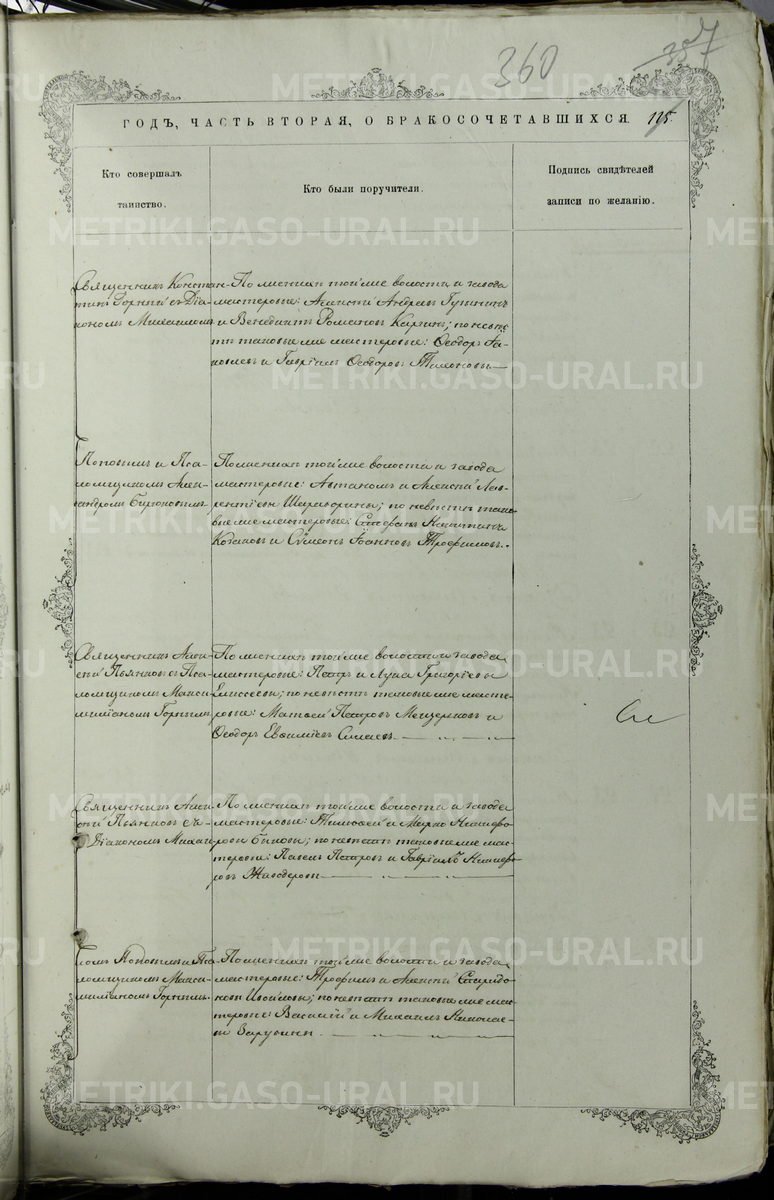 360
357
ГОДЪ, ЧАСТЬ ВТОРАЯ, О БРАКОСОЧЕТАВШИХСЯ. 115.
Кто совершалъ
таинство.
Кто были поручители.
Подпись свидѣтелей
записи по желанію.
Священникъ Констан-
тинъ Горный съ Діа-
кономъ Михаиломъ
По женихѣ той же волости и завода
мастеровые: Алексѣй Андреевъ
и Венедиктъ Романовъ по невѣс
тѣ таковые же мастеровые: Ѳеодоръ Іа-
ковлевъ и Гавріилъ Ѳеодоровъ
Поповымъ и Пса-
ломщикомъ Алек-
сандромъ Бирюковымъ
По женихѣ той же волости и завода
мастеровые: Автаномъ и Алексѣй Лав-
рентіевы по невѣстѣ тако-
вые же мастеровые: Стефанъ Никитинъ
Козловъ и Сѵмеонъ Іоанновъ Трофимовъ.
Священникъ Алек-
сѣй Пьянковъ съ Пса-
ломщикомъ Макси-
миліаномъ Горнымъ
По женихѣ той же волости и завода
мастеровые: Петръ и Лука Григоріевы
Елисѣевы; по невѣстѣ таковые же масте-
ровые: Матѳей Петровъ Мещеряковъ и
Ѳеодоръ Евѳиміевъ
Священникъ Алек-
сѣй Пьянковъ съ
Діакономъ Михаи-
По женихѣ той же волости и завода
мастеровые: Тимоѳей и Марко Никифо-
ровы Быковы; по невѣстѣ таковые же мас-
теровые: Павелъ Петровъ и Гавріилъ Никифо-
ровъ Живодеровы
ломъ Поповымъ и Пса-
ломщикомъ Макси-
миліаномъ Горнымъ
По женихѣ той же волости и завода
мастеровые: Трофимъ и Алексѣй Спиридо-
новы по невѣстѣ таковые же мас-
теровые: Василій и Михаилъ Николае-
вы Зарубины
METRIKI.GASO-URAL.RU